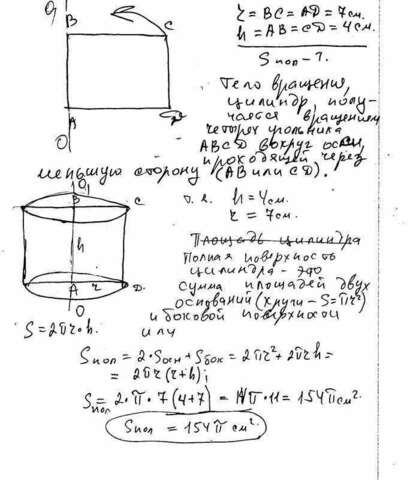 O₁
B
C
A
D
O
r = BC = AD = 7см.
h = AB = CD = 4см.
Sпол - ?
Тело вращения,
цилиндр, полу-
чается вращением
четырех угольника
ABCD вокруг оси,
проходящей через
меньшую сторону (AB или CD).
O₁
B
C
h
A
r
D
O
S = 2πr·h.
т.е. h = 4см
r = 7см.
Площадь цилиндра
Полная поверхность
цилиндра - это
сумма площадей двух
оснований (круги - S = πr²)
и боковой поверхности
или
Sпол = 2·Sосн + Sбок = 2πr² + 2πrh =
= 2πr(r+h);
Sпол = 2·π·7(4+7) = 14π·11 = 154π см².
Sпол = 154π см².